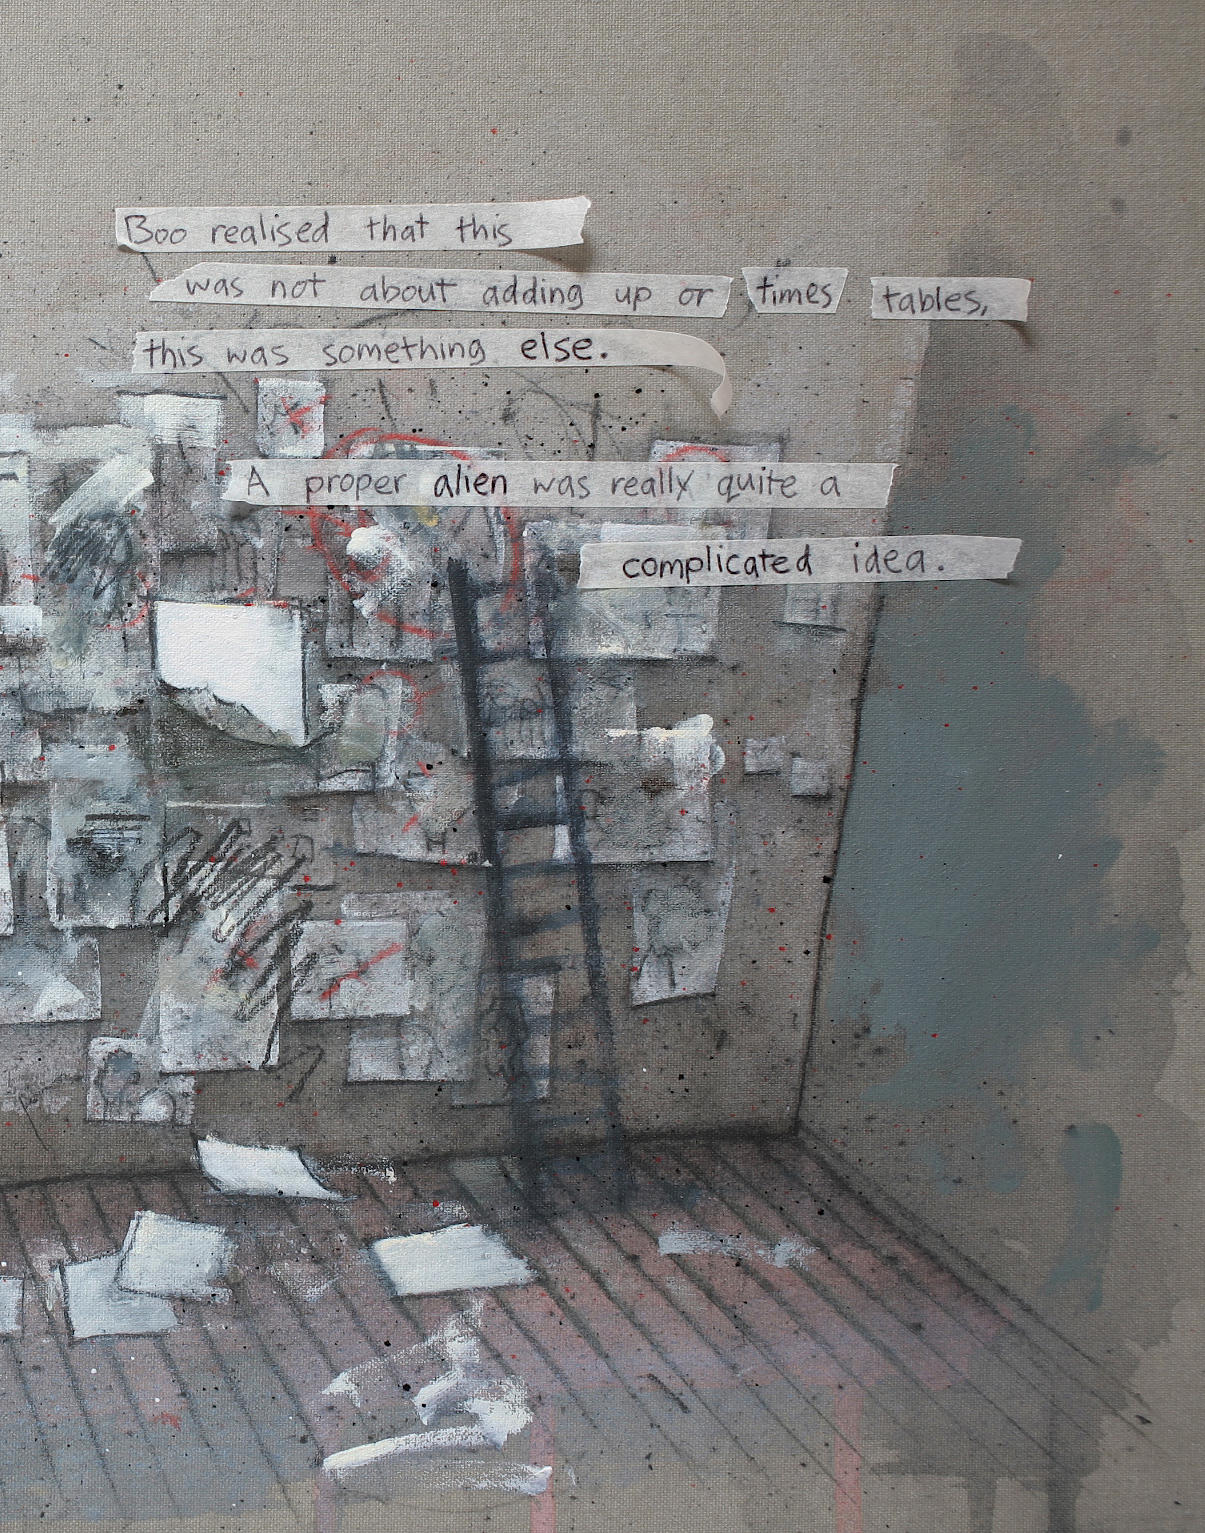 Boo realised that this
was not about adding up or times tables,
this was something else.
A proper alien was really quite a
complicated idea.